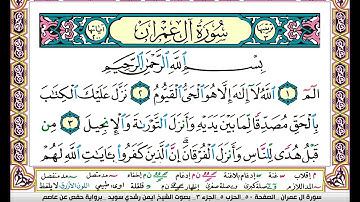 سُورَةُ آلِ عِمْرَانَ
بِسْمِ ٱللَّهِ ٱلرَّحْمَٰنِ ٱلرَّحِيمِ
الٓمٓ ١ ٱللَّهُ لَآ إِلَٰهَ إِلَّا هُوَ ٱلْحَىُّ ٱلْقَيُّومُ ٢ نَزَّلَ عَلَيْكَ ٱلْكِتَٰبَ
بِٱلْحَقِّ مُصَدِّقًا لِّمَا بَيْنَ يَدَيْهِ وَأَنزَلَ ٱلتَّوْرَىٰةَ وَٱلْإِنجِيلَ ٣ مِن
قَبْلُ هُدًى لِّلنَّاسِ وَأَنزَلَ ٱلْفُرْقَانَ إِنَّ ٱلَّذِينَ كَفَرُوا۟ بِـَٔايَٰتِ ٱللَّهِ لَهُمْ
سورة ال عمران الصفحة ٥٠ الجزء ٣ بصوت الشيخ ايمن رشدي سويد برواية حفص عن عاصم